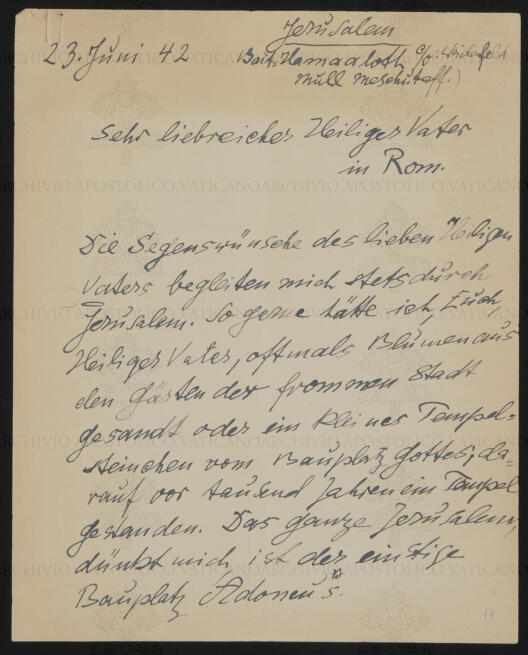 Jerusalem
23. Juni 42
Beit: Hamaaloth c/o: Widenfeld
Sehr liebreicher Heiliger Vater
in Rom.
Die Segenswünsche des lieben Heiligen
Vaters begleiten mich stets durch
Jerusalem. So gerne hätte ich, Euch
Heiliger Vater, oftmals Blumen aus
den Gärten der frommen Stadt
gesandt oder ein kleines Tempel=
steinchen vom Bauplatz Gottes, da=
rauf vor tausend Jahren ein Tempel
gestanden. Das ganze Jerusalem,
dünkt mich, ist der einstige
Bauplatz Adoneu's.
11
ARCHIVIO APOSTOLICO VATICANO